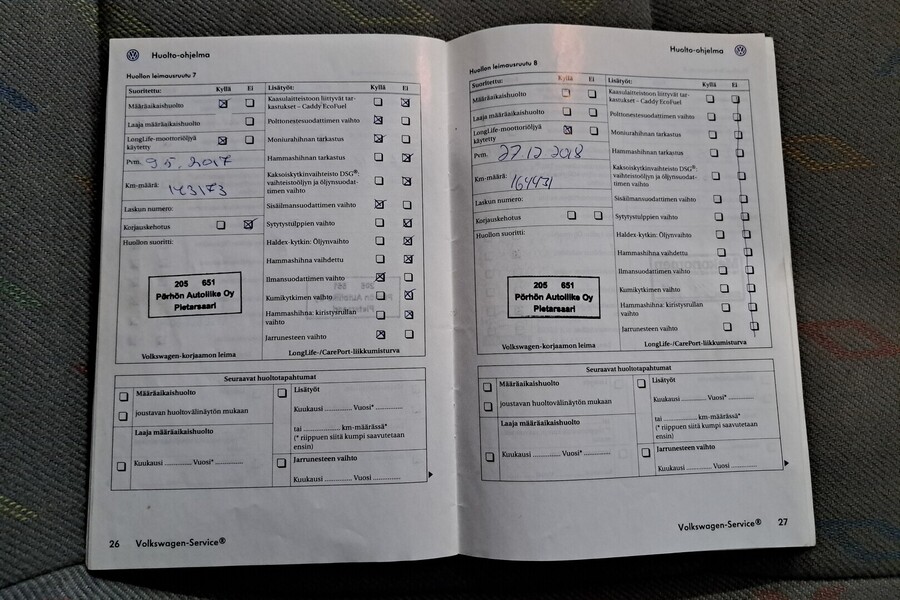 Huolto-ohjelma
Huollon leimausruutu 7
Suoritettu: Kyllä Ei
Määräaikaishuolto
Laaja määräaikaishuolto
LongLife-moottoriöljyä
käytetty
Pvm. 9 5. 2017
Km-määrä: 143173
Laskun numero:
Korjauskehotus
Huollon suoritti:
205 651
Pörhön Autoliike Oy
Pietarsaari
Volkswagen-korjaamon leima
Lisätyöt: Kyllä Ei
Kaasulaitteistoon liittyvät tar-
kastukset – Caddy EcoFuel
Polttonestesuodattimen vaihto
Moniurahihnan tarkastus
Hammashihnan tarkastus
Kaksoiskytkinvaihteisto DSG®:
vaihteistoöljyn ja öljynsuodat-
timen vaihto
Sisäilmansuodattimen vaihto
Sytytystulppien vaihto
Haldex-kytkin: Öljynvaihto
Hammashihna vaihdettu
Ilmansuodattimen vaihto
Kumikytkimen vaihto
Hammashihna: kiristysrullan
vaihto
Jarrunesteen vaihto
LongLife-/CarePort-liikkumisturva
Seuraavat huoltotapahtumat
Määräaikaishuolto
joustavan huoltovälinäytön mukaan
Laaja määräaikaishuolto
Kuukausi ............ Vuosi* ............
Lisätyöt
Kuukausi ............ Vuosi* ............
tai ............ km-määrässä*
(* riippuen siitä kumpi saavutetaan
ensin)
Jarrunesteen vaihto
Kuukausi ............ Vuosi ............
26 Volkswagen-Service®
Huolto-ohjelma
Huollon leimausruutu 8
Suoritettu: Kyllä Ei
Määräaikaishuolto
Laaja määräaikaishuolto
LongLife-moottoriöljyä
käytetty
Pvm. 27.12 2018
Km-määrä: 164431
Laskun numero:
Korjauskehotus
Huollon suoritti:
205 651
Pörhön Autoliike Oy
Pietarsaari
Volkswagen-korjaamon leima
Lisätyöt: Kyllä Ei
Kaasulaitteistoon liittyvät tar-
kastukset – Caddy EcoFuel
Polttonestesuodattimen vaihto
Moniurahihnan tarkastus
Hammashihnan tarkastus
Kaksoiskytkinvaihteisto DSG®:
vaihteistoöljyn ja öljynsuodat-
timen vaihto
Sisäilmansuodattimen vaihto
Sytytystulppien vaihto
Haldex-kytkin: Öljynvaihto
Hammashihna vaihdettu
Ilmansuodattimen vaihto
Kumikytkimen vaihto
Hammashihna: kiristysrullan
vaihto
Jarrunesteen vaihto
LongLife-/CarePort-liikkumisturva
Seuraavat huoltotapahtumat
Määräaikaishuolto
joustavan huoltovälinäytön mukaan
Laaja määräaikaishuolto
Kuukausi ............ Vuosi* ............
Lisätyöt
Kuukausi ............ Vuosi* ............
tai ............ km-määrässä*
(* riippuen siitä kumpi saavutetaan
ensin)
Jarrunesteen vaihto
Kuukausi ............ Vuosi ............
Volkswagen-Service® 27